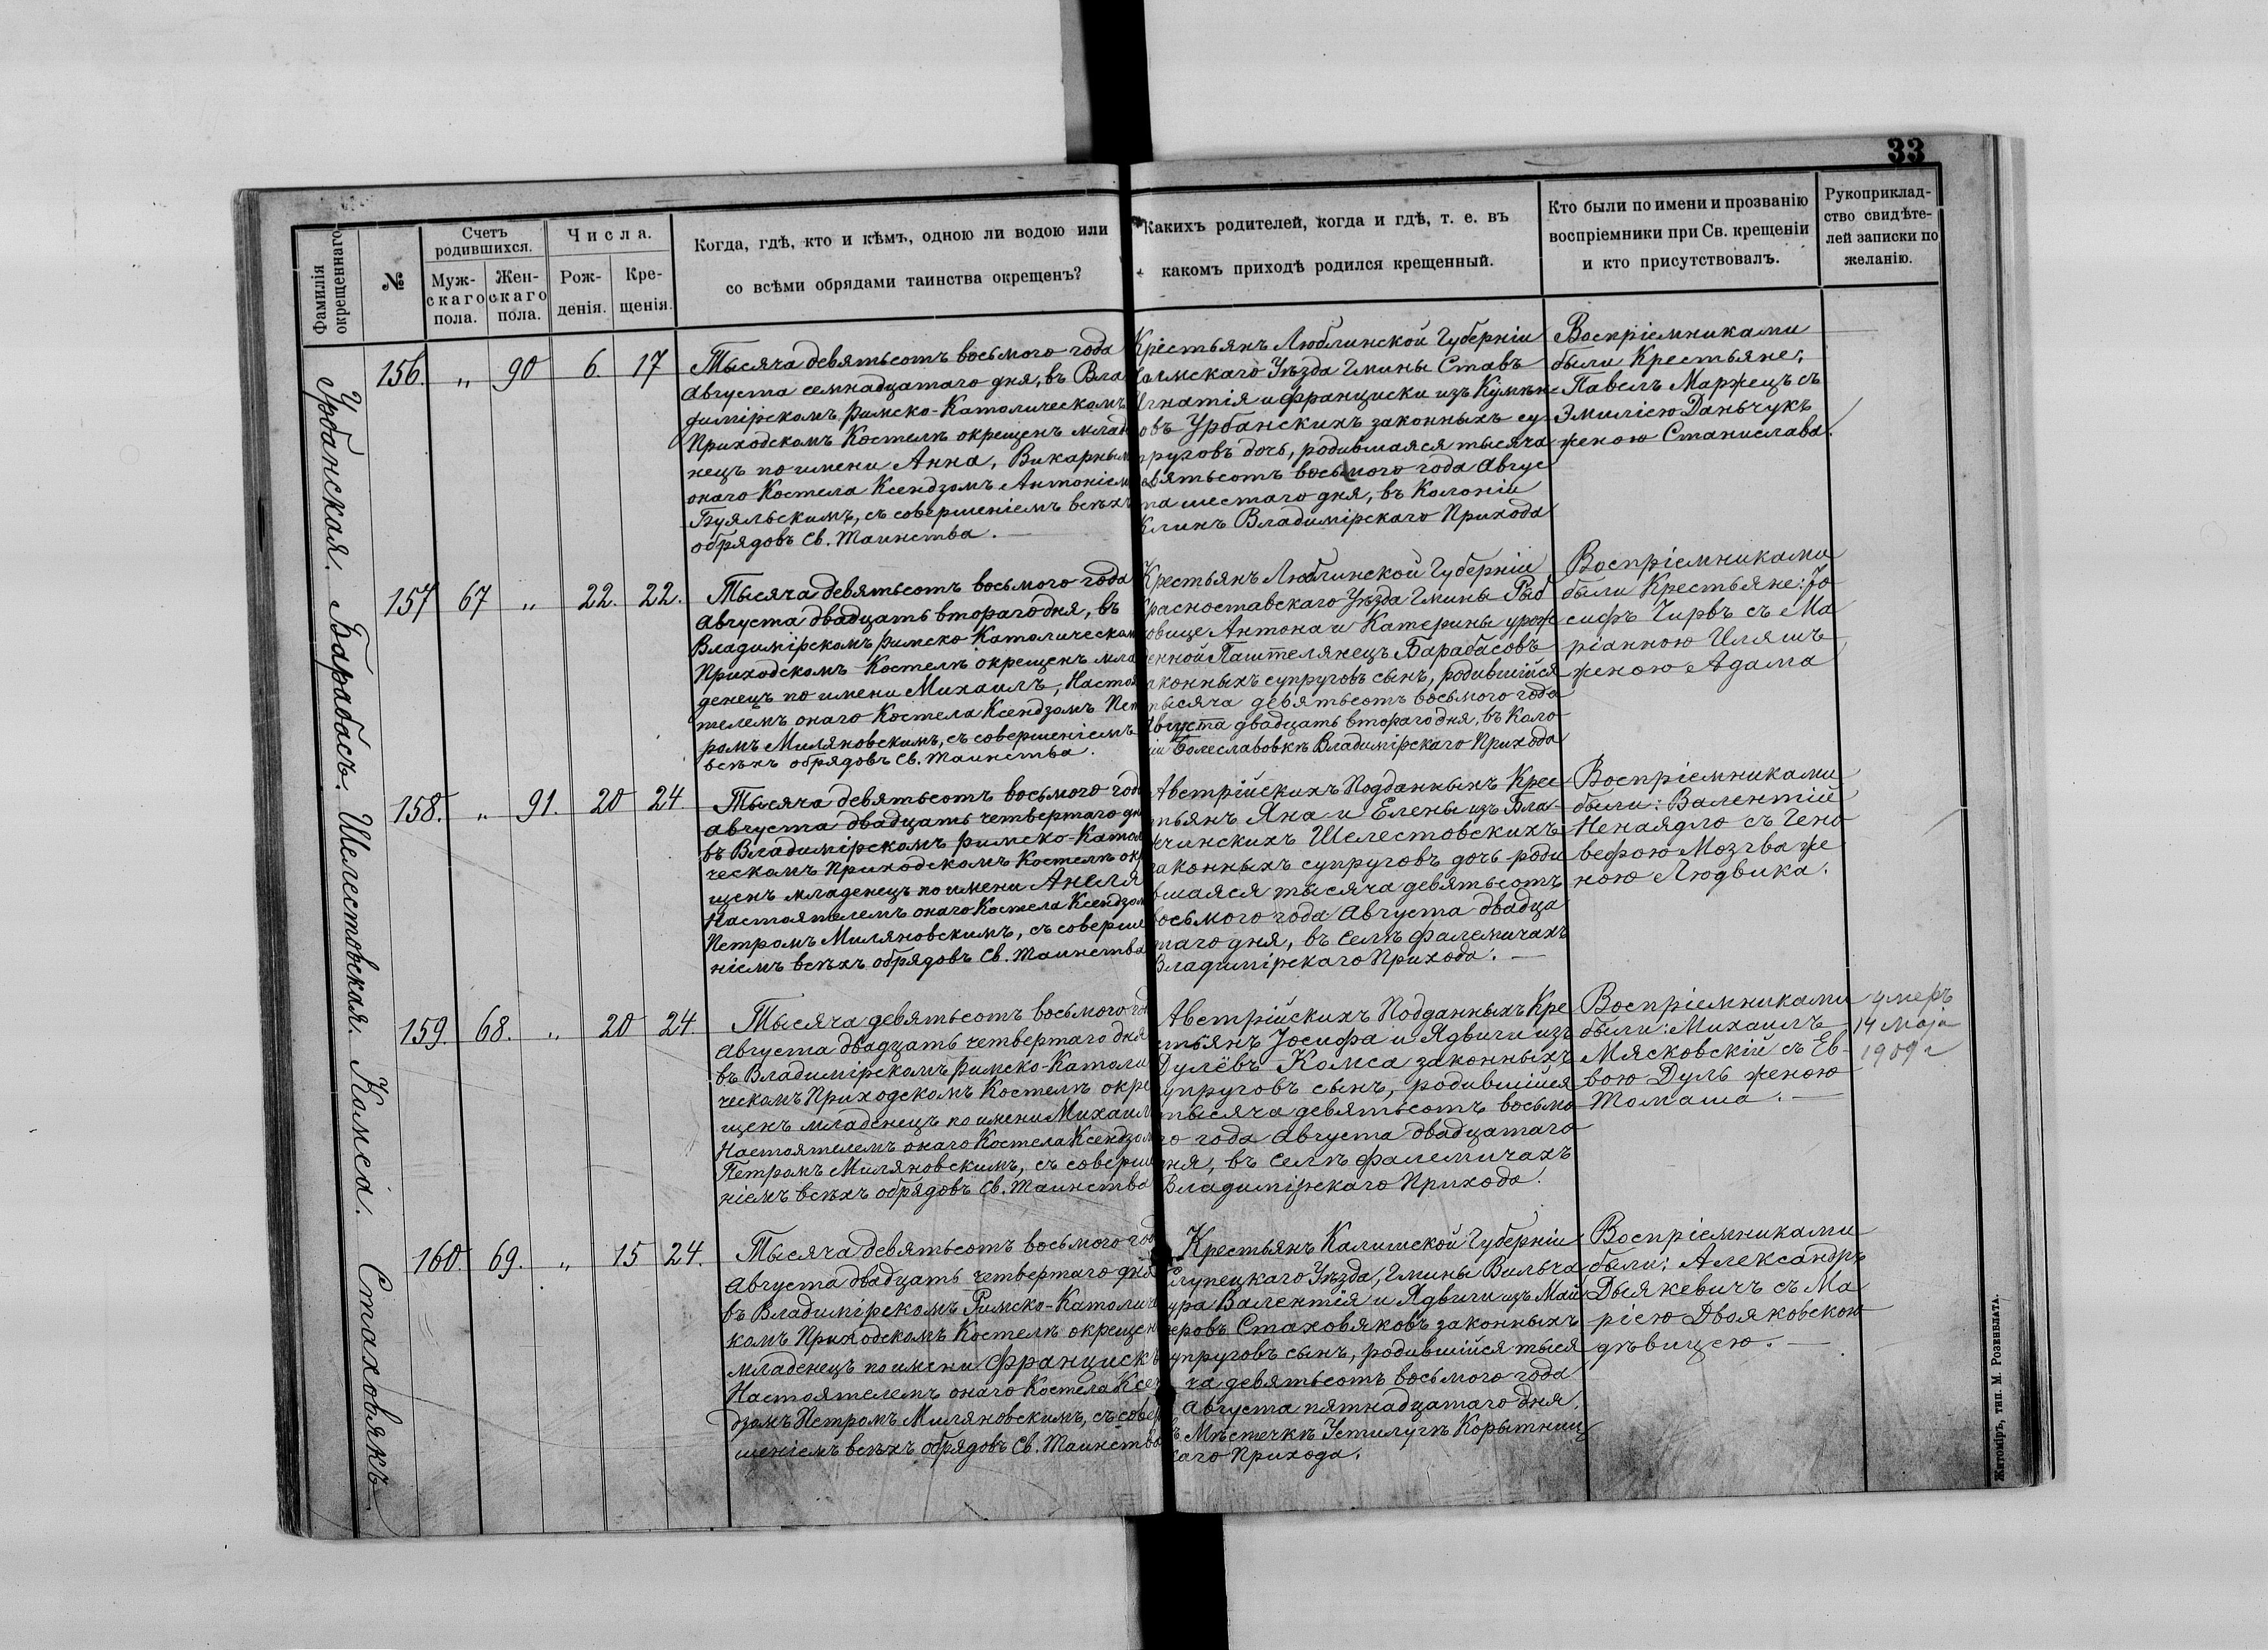 33
Фамилія
окрещеннаго
№
Счетъ
родившихся.
Муж-
скаго
пола.
Жен-
скаго
пола.
Числа.
Рож-
денія.
Кре-
щенія.
Когда, гдѣ, кто и кѣмъ, одною ли водою или
со всѣми обрядами таинства окрещенъ?
Какихъ родителей, когда и гдѣ, т. е. въ
какомъ приходѣ родился крещенный.
Кто были по имени и прозванію
воспріемники при Св. крещеніи
и кто присутствовалъ.
Рукоприклад-
ство свидѣте-
лей записки по
желанію.
Урбанская.
156. „ 90 6. 17
Тысяча девятьсотъ восьмого года
Августа семнадцатаго дня, въ Вла
димірскомъ Римско-Католическомъ
Приходскомъ Костелѣ окрещенъ млад
нецъ по имени Анна, Викарнымъ
онаго Костела Ксендзомъ Антоніем
Буяльскимъ, съ совершеніемъ всѣхъ
обрядовъ Св. Таинства.
Крестьянъ Люблинской Губерніи
Холмскаго Уѣзда Гмины Ставъ
Игнатія и Франциски изъ Кумѣн
овъ Урбанскихъ законныхъ су
пруговъ дочь, родившаяся тысяча
евятьсотъ восьмого года Авгус
та шестаго дня, въ Колоніи
Клинъ Владимірскаго Прихода
Воспріемниками
были Крестьяне:
Павелъ Маржецъ съ
Эмиліею Даньчукъ
женою Станислава.
Барабасъ.
157 67 „ 22. 22.
Тысяча девятьсотъ восьмого года
Августа двадцать втораго дня, въ
Владимірскомъ Римско-Католическом
Приходскомъ Костелѣ окрещенъ мла
денецъ по имени Михаилъ, Настоя
телемъ онаго Костела Ксендзомъ Пет
ромъ Миляновскимъ, съ совершеніемъ
всѣхъ обрядовъ Св. Таинства.
Крестьянъ Люблинской Губерніи
Красноставскаго Уѣзда Гмины Рыб
овице Антона и Катерины урож
енной Паштелянецъ Барабасовъ
аконныхъ супруговъ сынъ, родившійся
тысяча девятьсотъ восьмого года
Августа двадцать втораго дня, въ Коло
ніи Болеславовкѣ Владимірскаго Прихода
Воспріемниками
были Крестьяне: Іо
сифъ Чирвъ съ Ма
ріанною Иляшъ
женою Адама
Шелестовская.
158. „ 91. 20 24
Тысяча девятьсотъ восьмого год
Августа двадцать четвертаго дн
въ Владимірскомъ Римско-Катол
ческомъ Приходскомъ Костелѣ ок
щенъ младенецъ по имени Анеля
Настоятелемъ онаго Костела Ксендзом
Петромъ Миляновскимъ, съ соверше
ніемъ всѣхъ обрядовъ Св. Таинства
Австрійскихъ Подданныхъ Крес
тьянъ Яна и Елены изъ Бла-
чинскихъ Шелестовскихъ
законныхъ супруговъ дочь роди
вшаяся тысяча девятьсотъ
восьмого года Августа двадца
таго дня, въ Селѣ Фалемичахъ
Владимірскаго Прихода.
Воспріемниками
были: Валентій
Ненаядло съ Гено
вефою Мозгва же
ною Людвика.
Комса.
159. 68. „ 20 24.
Тысяча девятьсотъ восьмого го
Августа двадцать четвертаго дня
въ Владимірскомъ Римско-Католи
ческомъ Приходскомъ Костелѣ окре
щенъ младенецъ по имени Михаил
Настоятелемъ онаго Костела Ксендзом
Петромъ Миляновскимъ, съ соверше
ніемъ всѣхъ обрядовъ Св. Таинства
Австрійскихъ Подданныхъ Кре
стьянъ Іосифа и Ядвиги изъ
Дулёвъ Комса законныхъ
супруговъ сынъ, родившійся
тысяча девятьсотъ восьмо
го года Августа двадцатаго
дня, въ Селѣ Фалемичахъ
Владимірскаго Прихода.
Воспріемниками
были: Михаилъ
Мясковскій съ Ев-
вою Дуль женою
Томаша.
Умеръ
14 Маја
1909 г
Стаховякъ.
160. 69. „ 15 24.
Тысяча девятьсотъ восьмого год
Августа двадцать четвертаго дня
въ Владимірскомъ Римско-Католиче
комъ Приходскомъ Костелѣ окрещен
младенецъ по имени Францискъ
Настоятелемъ онаго Костела Ксен
дзомъ Петромъ Миляновскимъ, съ совер
шеніемъ всѣхъ обрядовъ Св. Таинства
Крестьянъ Калишской Губерніи
Слупецкаго Уѣзда, Гмины Вильча
ура Валентія и Ядвиги изъ Май
еровъ Стаховяковъ законныхъ
супруговъ сынъ, родившійся тыся
ча девятьсотъ восьмого года
Августа пятнадцатаго дня,
въ Мѣстечкѣ Устилугѣ Корытниц
каго Прихода.
Воспріемниками
были: Александръ
Дыякевичъ съ Ма
ріею Двояковскою
дѣвицею.
Житоміръ, тип. М. Розенблата.